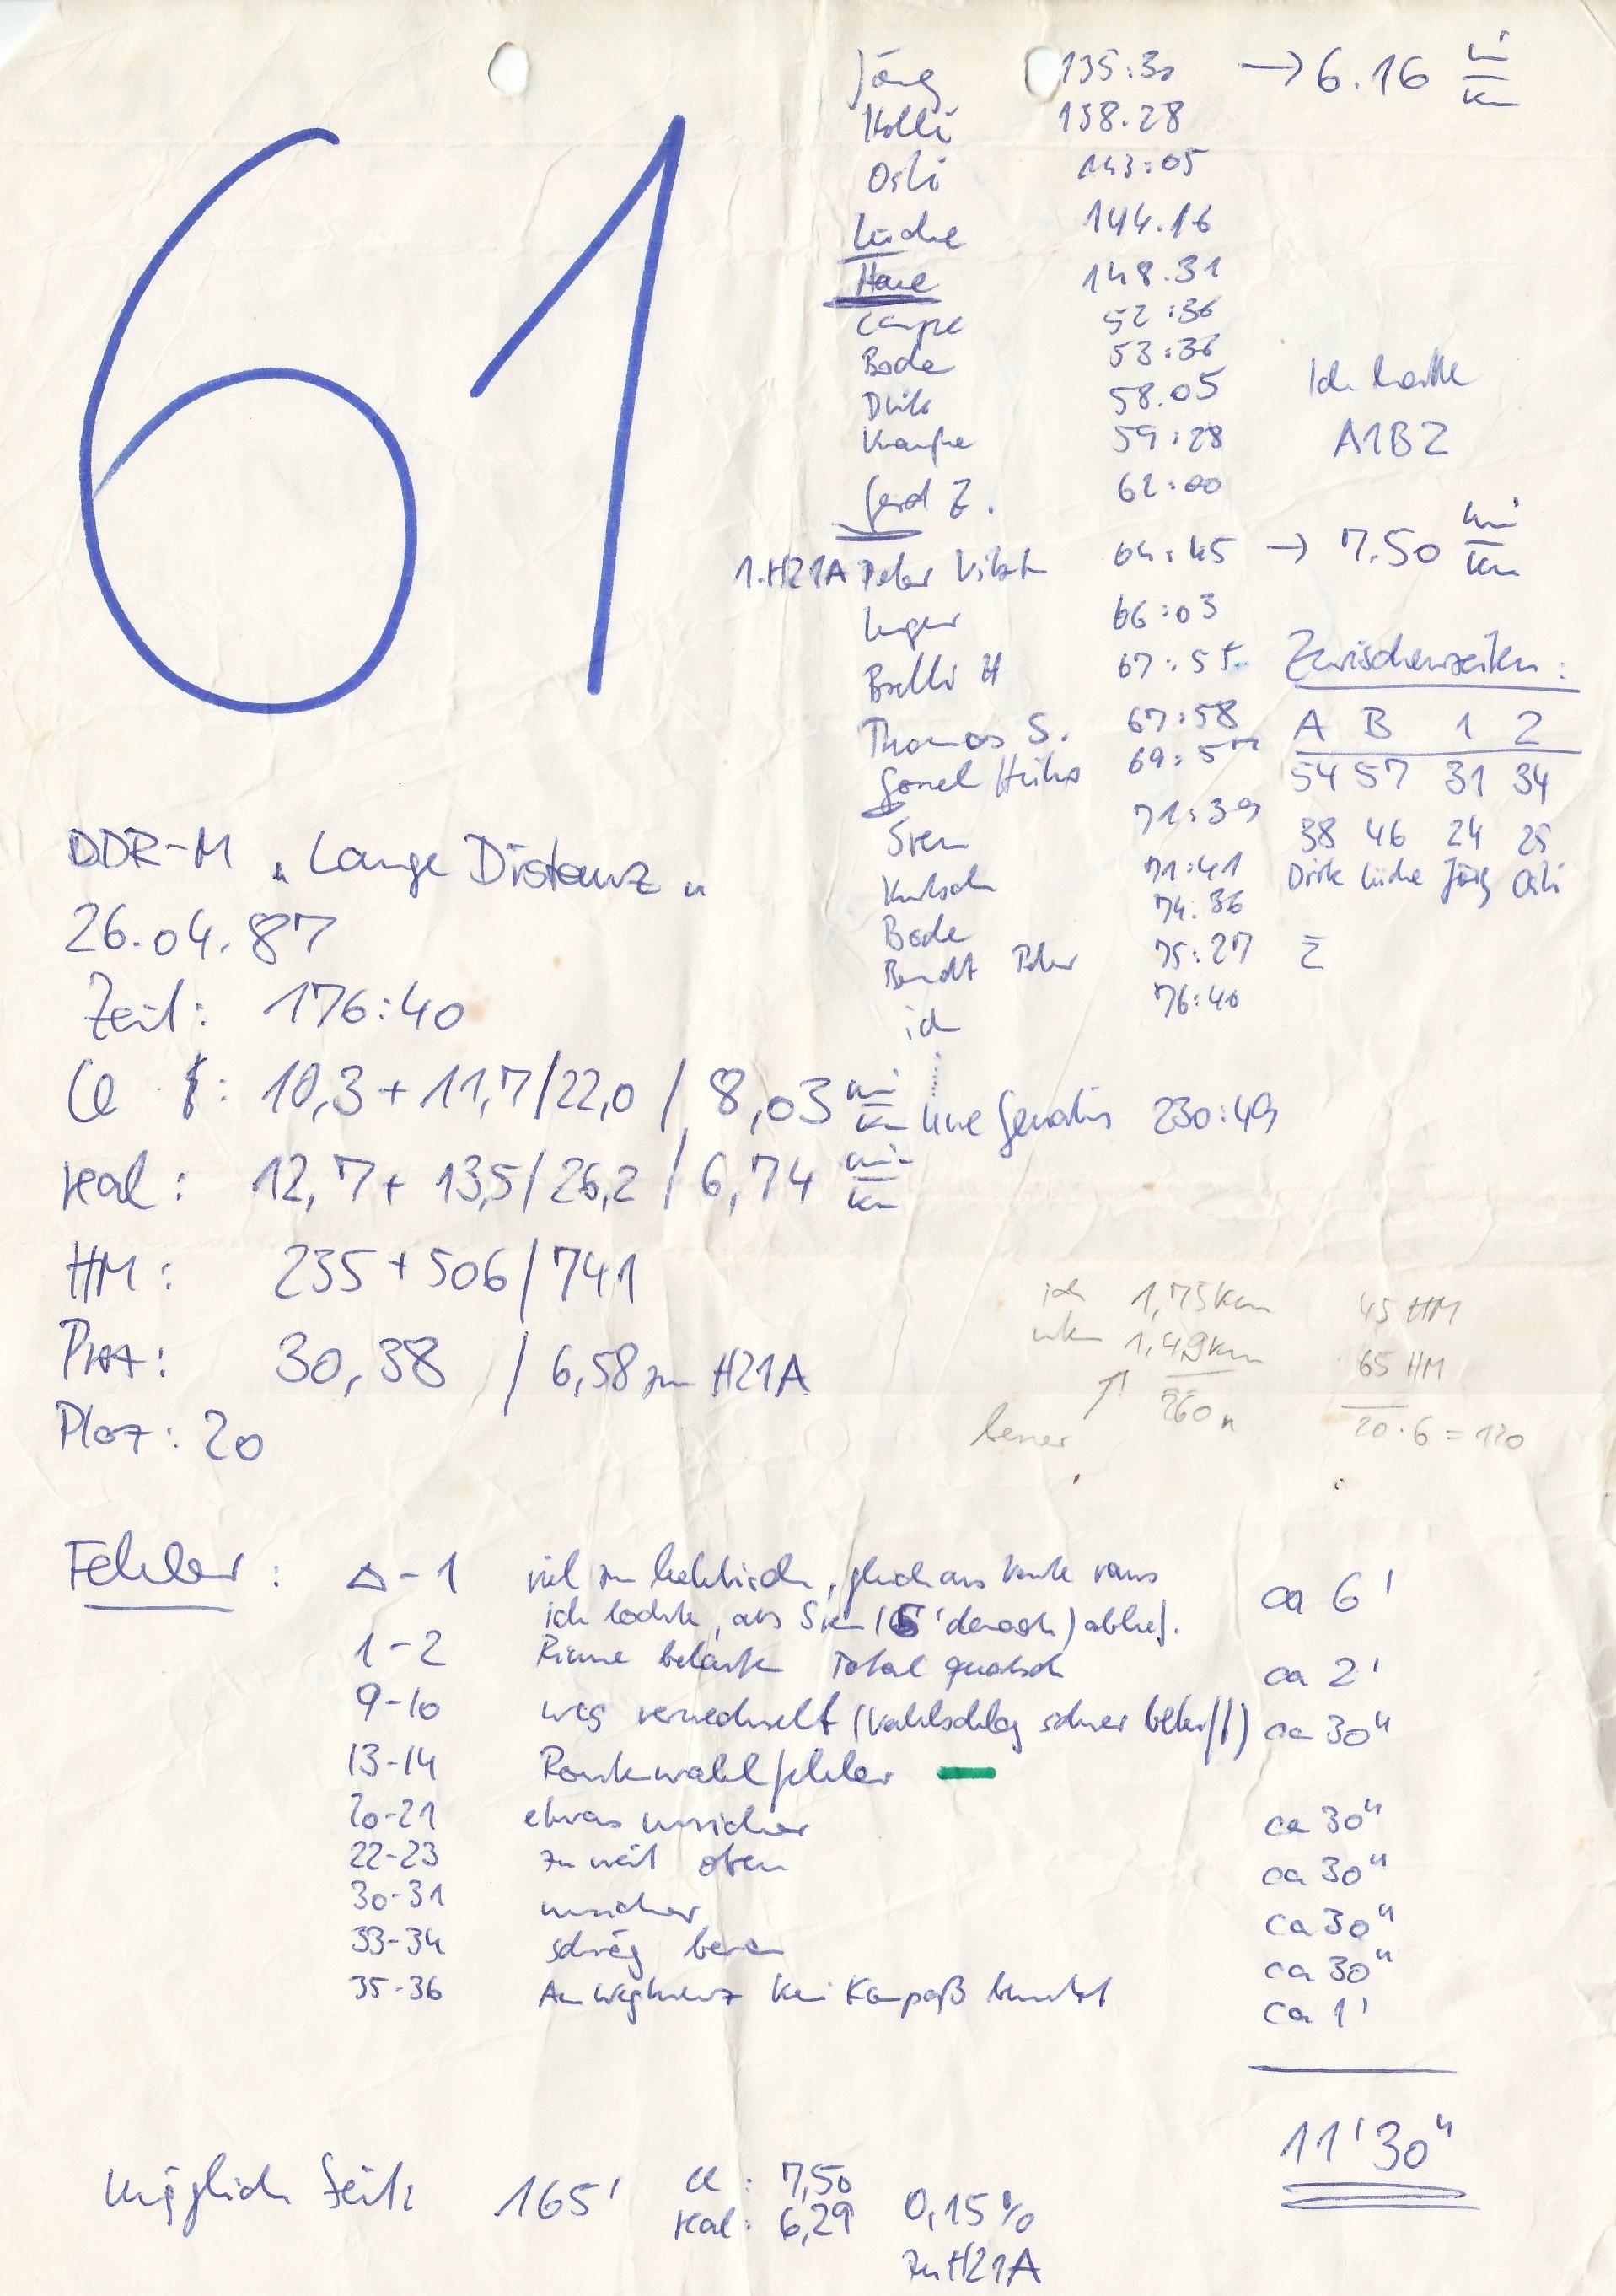 61
Jörg 135:30 → 6.16 min/km
Kolli 138.28
Osti 143:05
Lüche 144.16
Hase 148.31
52:36
Bode 53:36
Dirk 58.05
Ich hatte
Krampe 59:28
A1B2
Gerd Z. 62:00
1.H21A Peter 64:45 → 7.50 min/km
66:03
H 67:55
Zwischenzeiten:
Thomas S. 67:58
A B 1 2
Heiko 69:57
54 57 31 34
Sven 71:39
38 46 24 25
Dirk Lüche Jörg Osti
71:41
Bode 74.36
Peter 75:27
ich 76:40
230:49
DDR-M „Lange Distanz"
26.04.87
Zeit: 176:40
10,3 + 11,7/22,0 / 8,03 min/km
real: 12,7 + 13,5/26,2 / 6,74 min/km
HM: 235 + 506/741
30,38 / 6,58 zu H21A
Platz: 20
ich 1,75km 45 HM
1,49km 65 HM
260m 20·6 = 120
besser ↑
Fehler: △-1 viel zu hektisch, gleich aus Karte raus ca 6'
ich dachte, als Sven (6' danach) ablief.
1-2 Rinne Total quatsch ca 2'
9-10 weg verwechselt (Kahlschlag schwer ca 30"
13-14 Routenwahlfehler —
20-21 etwas unsicher ca 30"
22-23 zu weit oben ca 30"
30-31 unsicher ca 30"
33-34 schräg ca 30"
35-36 Am Wegkreuz kein Kompaß benutzt ca 1'
11'30"
Mögliche Zeit: 165'
7,50
real: 6,29
0,15%
zu H21A